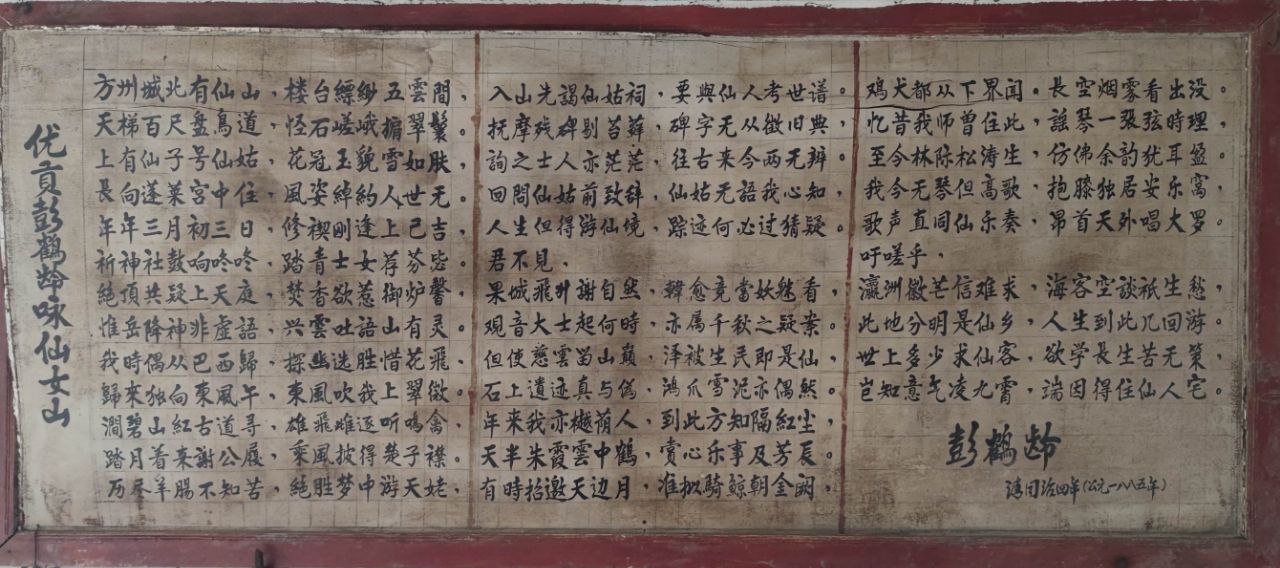 优貢彭鶴龄咏仙女山
方州城北有仙山，楼台縹緲五雲間，
天梯百尺盤鳥道，怪石嵯峨擁翠鬟。
上有仙子号仙姑，花冠玉貌雪如肤，
長向蓬莱宮中住，風姿綽約人世无。
年年三月初三日，修禊剛逢上巳吉，
祈神社鼓响咚咚，踏青士女荐芬苾。
絕頂共疑上天庭，焚香欲惹御炉馨，
惟岳降神非虛語，兴雲吐語山有灵。
我時偶从巴西歸，探幽选胜惜花飛，
歸来独向東風午，東風吹我上翠微。
澗碧山紅古道尋，雄飛雌逐听鳴禽，
踏月着来謝公屐，乘風披得楚子襟。
历尽羊腸不知苦，絕胜梦中游天姥，
入山先謁仙姑祠，要與仙人考世谱。
抚摩残碑剔苔蘚，碑字无从徵旧典，
詢之士人亦茫茫，往古来今两无辨。
回問仙姑前致辞，仙姑无語我心知，
人生但得游仙境，踪迹何必过猜疑。
君不见，
果城飛升謝自然，韓愈竟當妖魅看，
观音大士起何時，亦属千秋之疑案。
但使慈雲留山巔，泽被生民即是仙，
石上遺迹真与偽，鴻爪雪泥亦偶然。
年来我亦樾荫人，到此方知隔紅尘，
天半朱霞雲中鶴，赏心乐事及芳辰。
有時招邀天边月，准拟騎鲸朝金阙，
鸡犬都从下界闻。長空烟雾看出没。
忆昔我师曾住此，謠琴一張弦時理，
至今林际松涛生，仿佛余韵犹耳盈。
我今无琴但高歌，抱膝独居安乐窝，
歌声直同仙乐奏，昂首天外唱大罗。
吁嗟乎，
瀛洲微芒信难求，海客空談衹生愁，
此地分明是仙乡，人生到此几回游。
世上多少求仙客，欲学長生苦无策，
岂知意气凌九霄，端因得住仙人宅。
彭鶴龄
清同治四年(公元一八八五年)